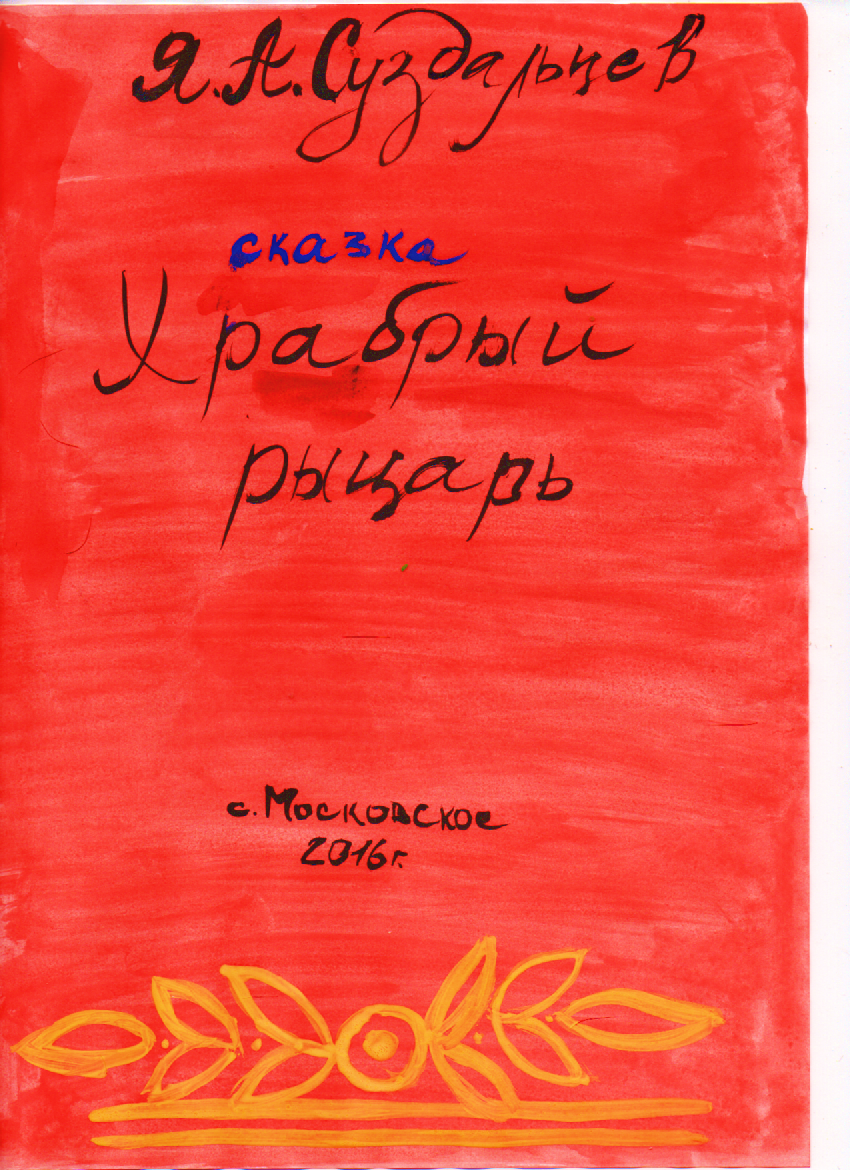 Я.А.Суздальцев
сказка
Храбрый
рыцарь
с. Московское
2016г.